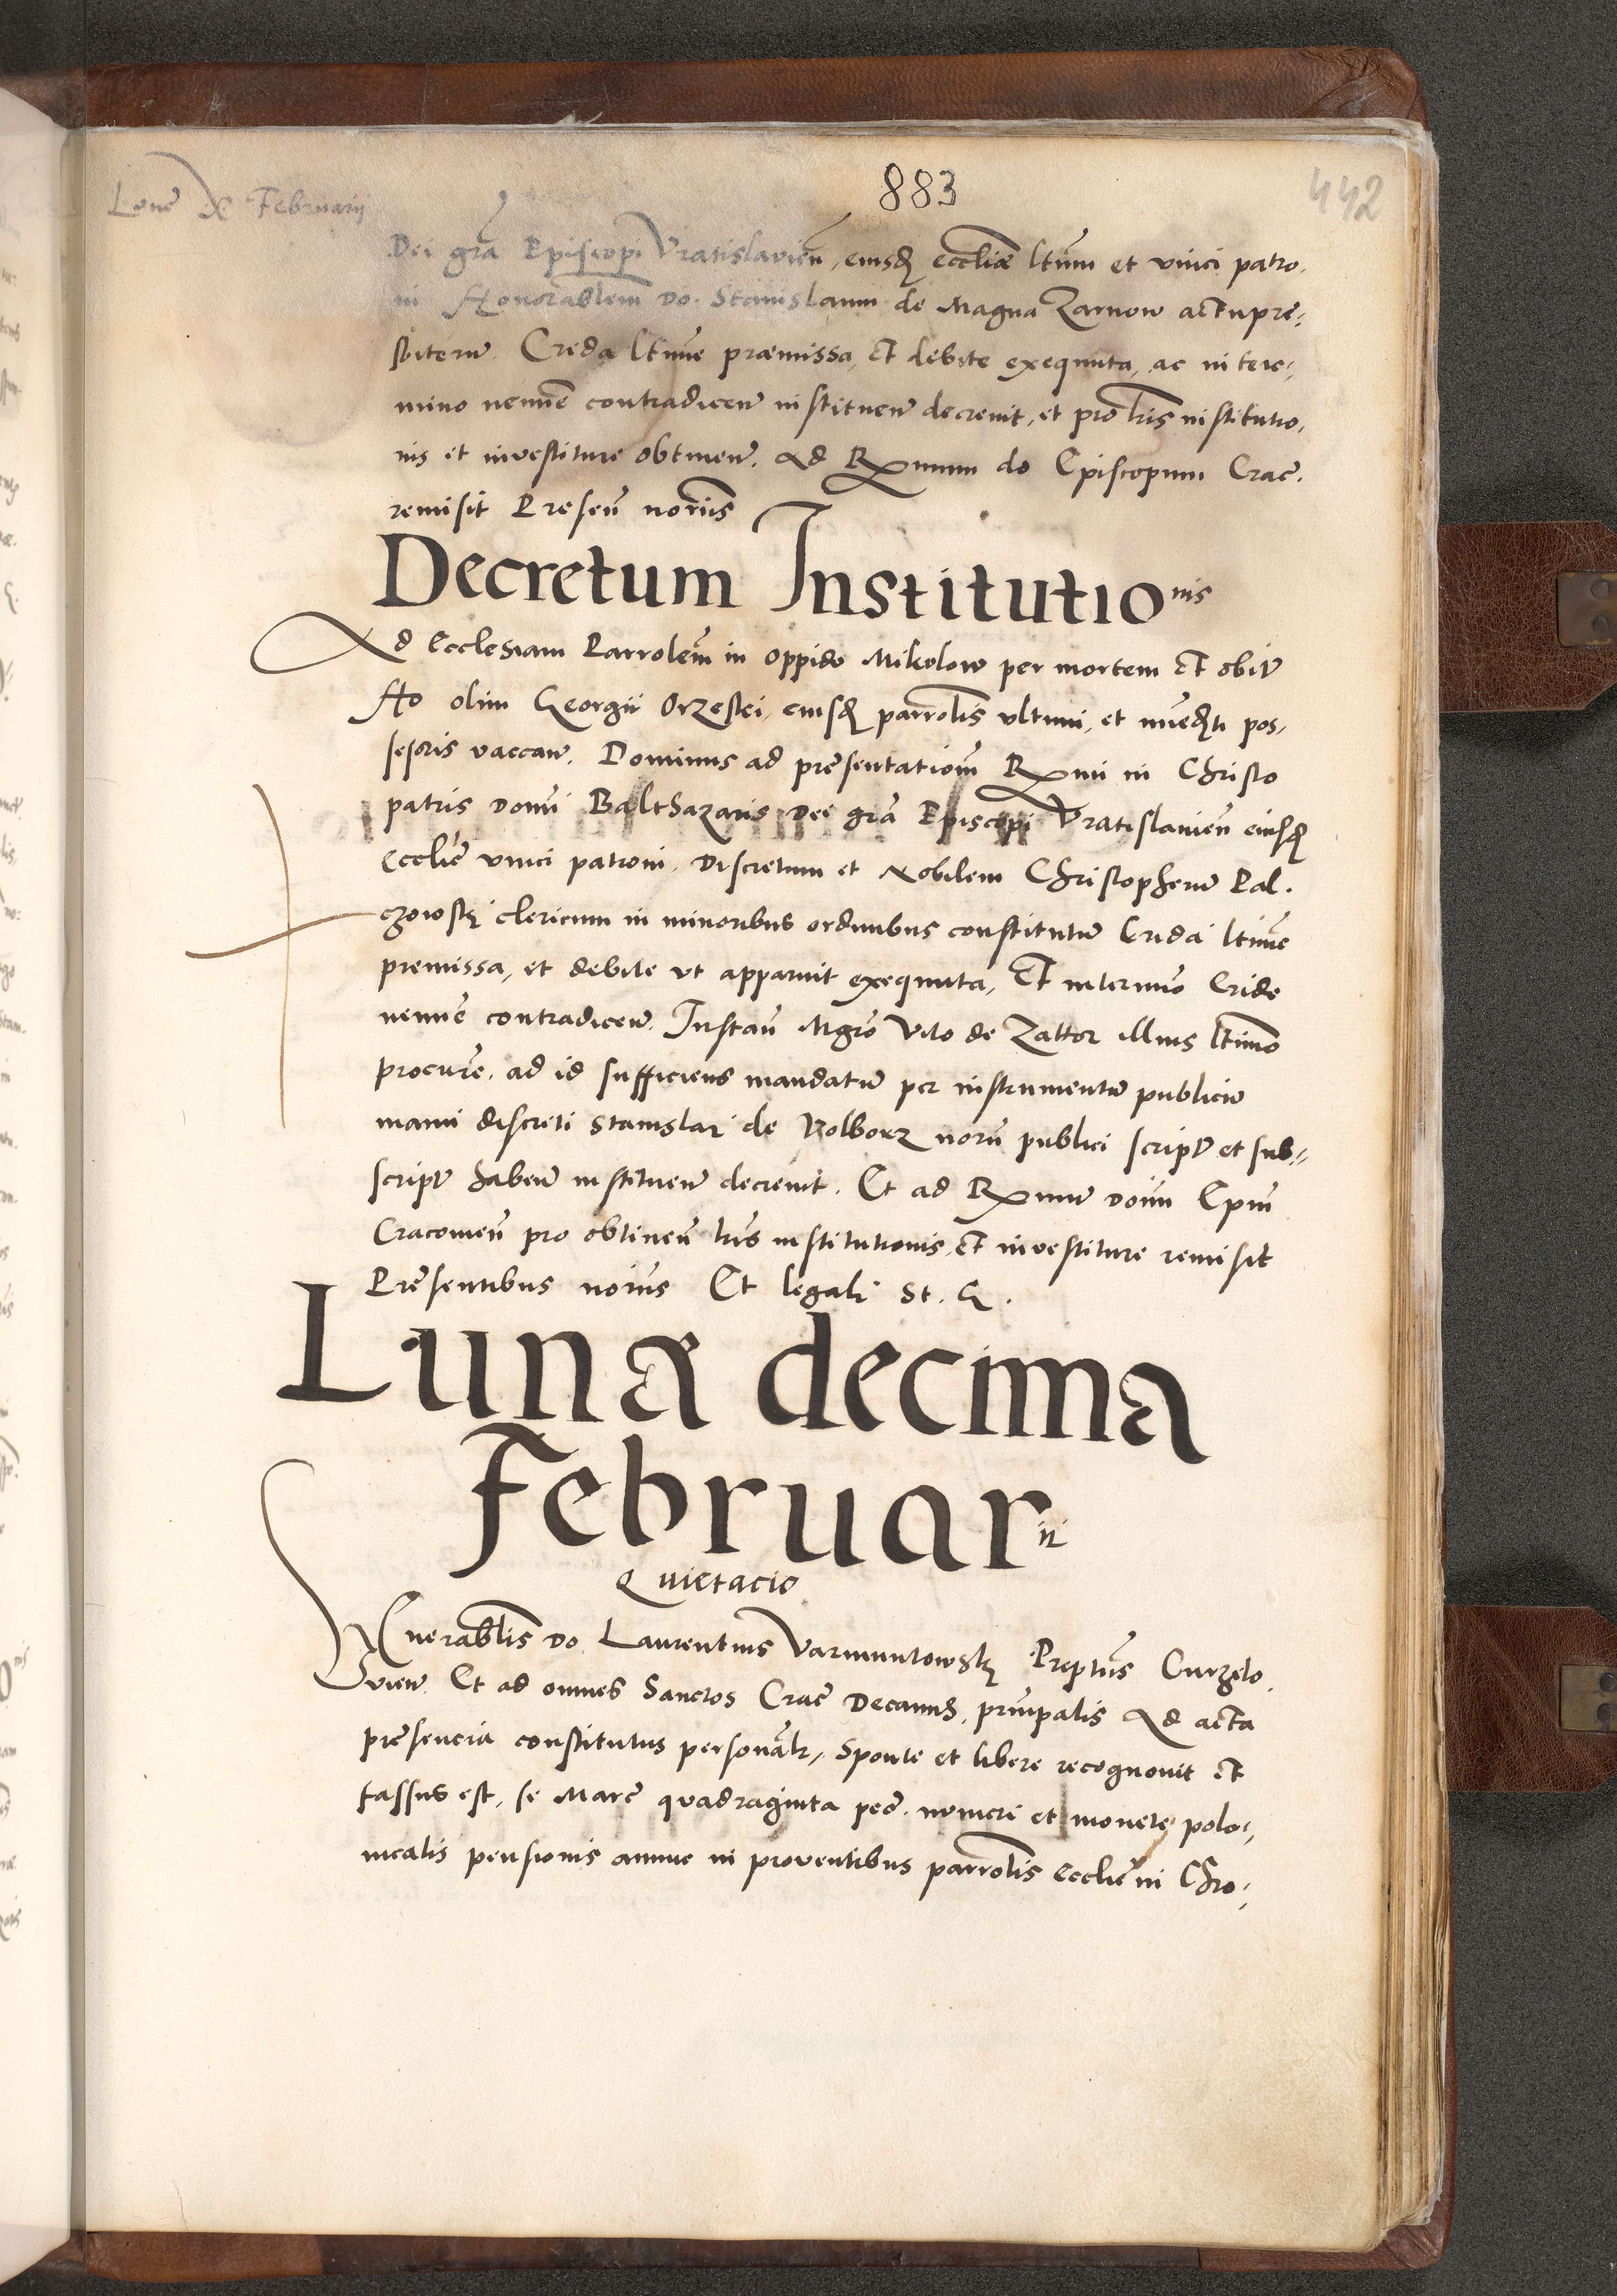 883
442
Lune X Februarii
Dei grã Episcopi Vratislavieñ, eiusdẽ eccliæ ltĩmi et vnici patro,
ni Honorablem Do. Stanislaum de Magna Zarnow actu pre:,
sbiterũ. Crida ltĩme præmissa, et debite exequuta, ac in ter,
mino nemĩe contradiceñ instituenẽ decrevit, et pro lris institutio,
nis et investiture obtinenẽ. Ad Rmum do Episcopum Crac̃.
remisit Preseñ notriis
Decretum Institutionis
Ad Ecclesiam Parrolem̃ in oppido Mikolow per mortem Et obitũ
Ho olim Georgii Orzeski, eiusdẽ parrolis vltimi, et imẽdti pos,
sesoris vaccanẽ. Dominus ad prẽsentationẽ Rmi in Christo
patris domĩ Balthazaris Dei grã Episcopi Vratislavieñ eiusdẽ
ecclie vnici patroni, Discretum et Nobilem Christopherũ Pal.
czowskị clericum in minoribus ordinibus constitutũ Crida ltĩme
premissa, et debite vt apparuit exequuta, Et in termĩo Cride
nemĩe contradiceñ. Instañ Mgrõ Vito de Zathor illius ltimo
procurẽ. ad id sufficiens mandatũ per instrumentũ publicũ
manu discreti Stanislai de Wolborz notrii publici script̃ et sub,,
script̃ habenẽ instituenẽ decrevit. Et ad Rmum domĩ Epm̃
Cracovieñ pro obtineñ lris institutionis, et investiture remisit
Prẽsentibus notriis Et legali St. G.
Luna decima
Februarii
Quietacio
Venerablis Do. Laurentius Varmuntowskị Preptũs Curzelo,
vienẽ. Et ad omnes Sanctos Crac̃ Decanus, principalis Ad acta
presencia constitutus personalr,, Sponte et libere recognovit et
fassus est, se Marc̃ quadraginta pec̃. numeri et monete polo,,
nicalis pensionis annue in proventibus parrolis ecclie in Chro,,